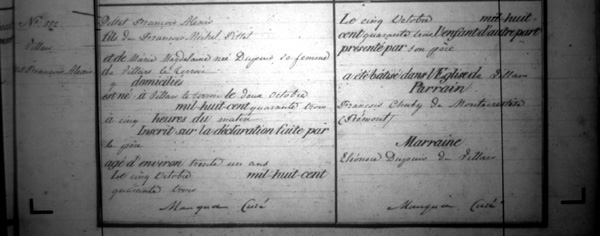 N.º
Pillet
Pillet François Alexis
Pillet François Alexis
fils de François Michel Pillet
et de Marie Magdelaine née Dupuis sa femme
de Villars le Terroir
domiciliés
est né à Villars le terroir le deux Octobre
mil-huit-cent quarante trois
à cinq heures du matin
Inscrit sur la déclaration faite par
le père
agé d'environ trente un ans
Le cinq Octobre mil-huit-cent
quarante trois
Curé
Le cinq Octobre mil-huit-
cent quarante trois l'enfant d'autre part
présenté par son père
a été batisé dans l'Eglise de Villars
Parrain
François de
(Piémont)
Marraine
Dupuis de Villars
Curé